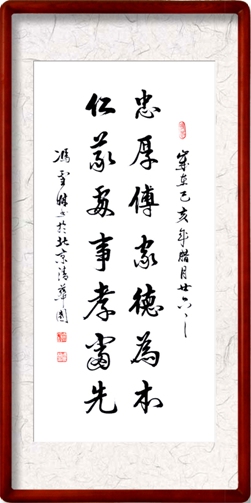 歲在己亥年腊月廿六日
忠厚傳家德為本
仁義處事孝當先
馮雪 於北京清華園